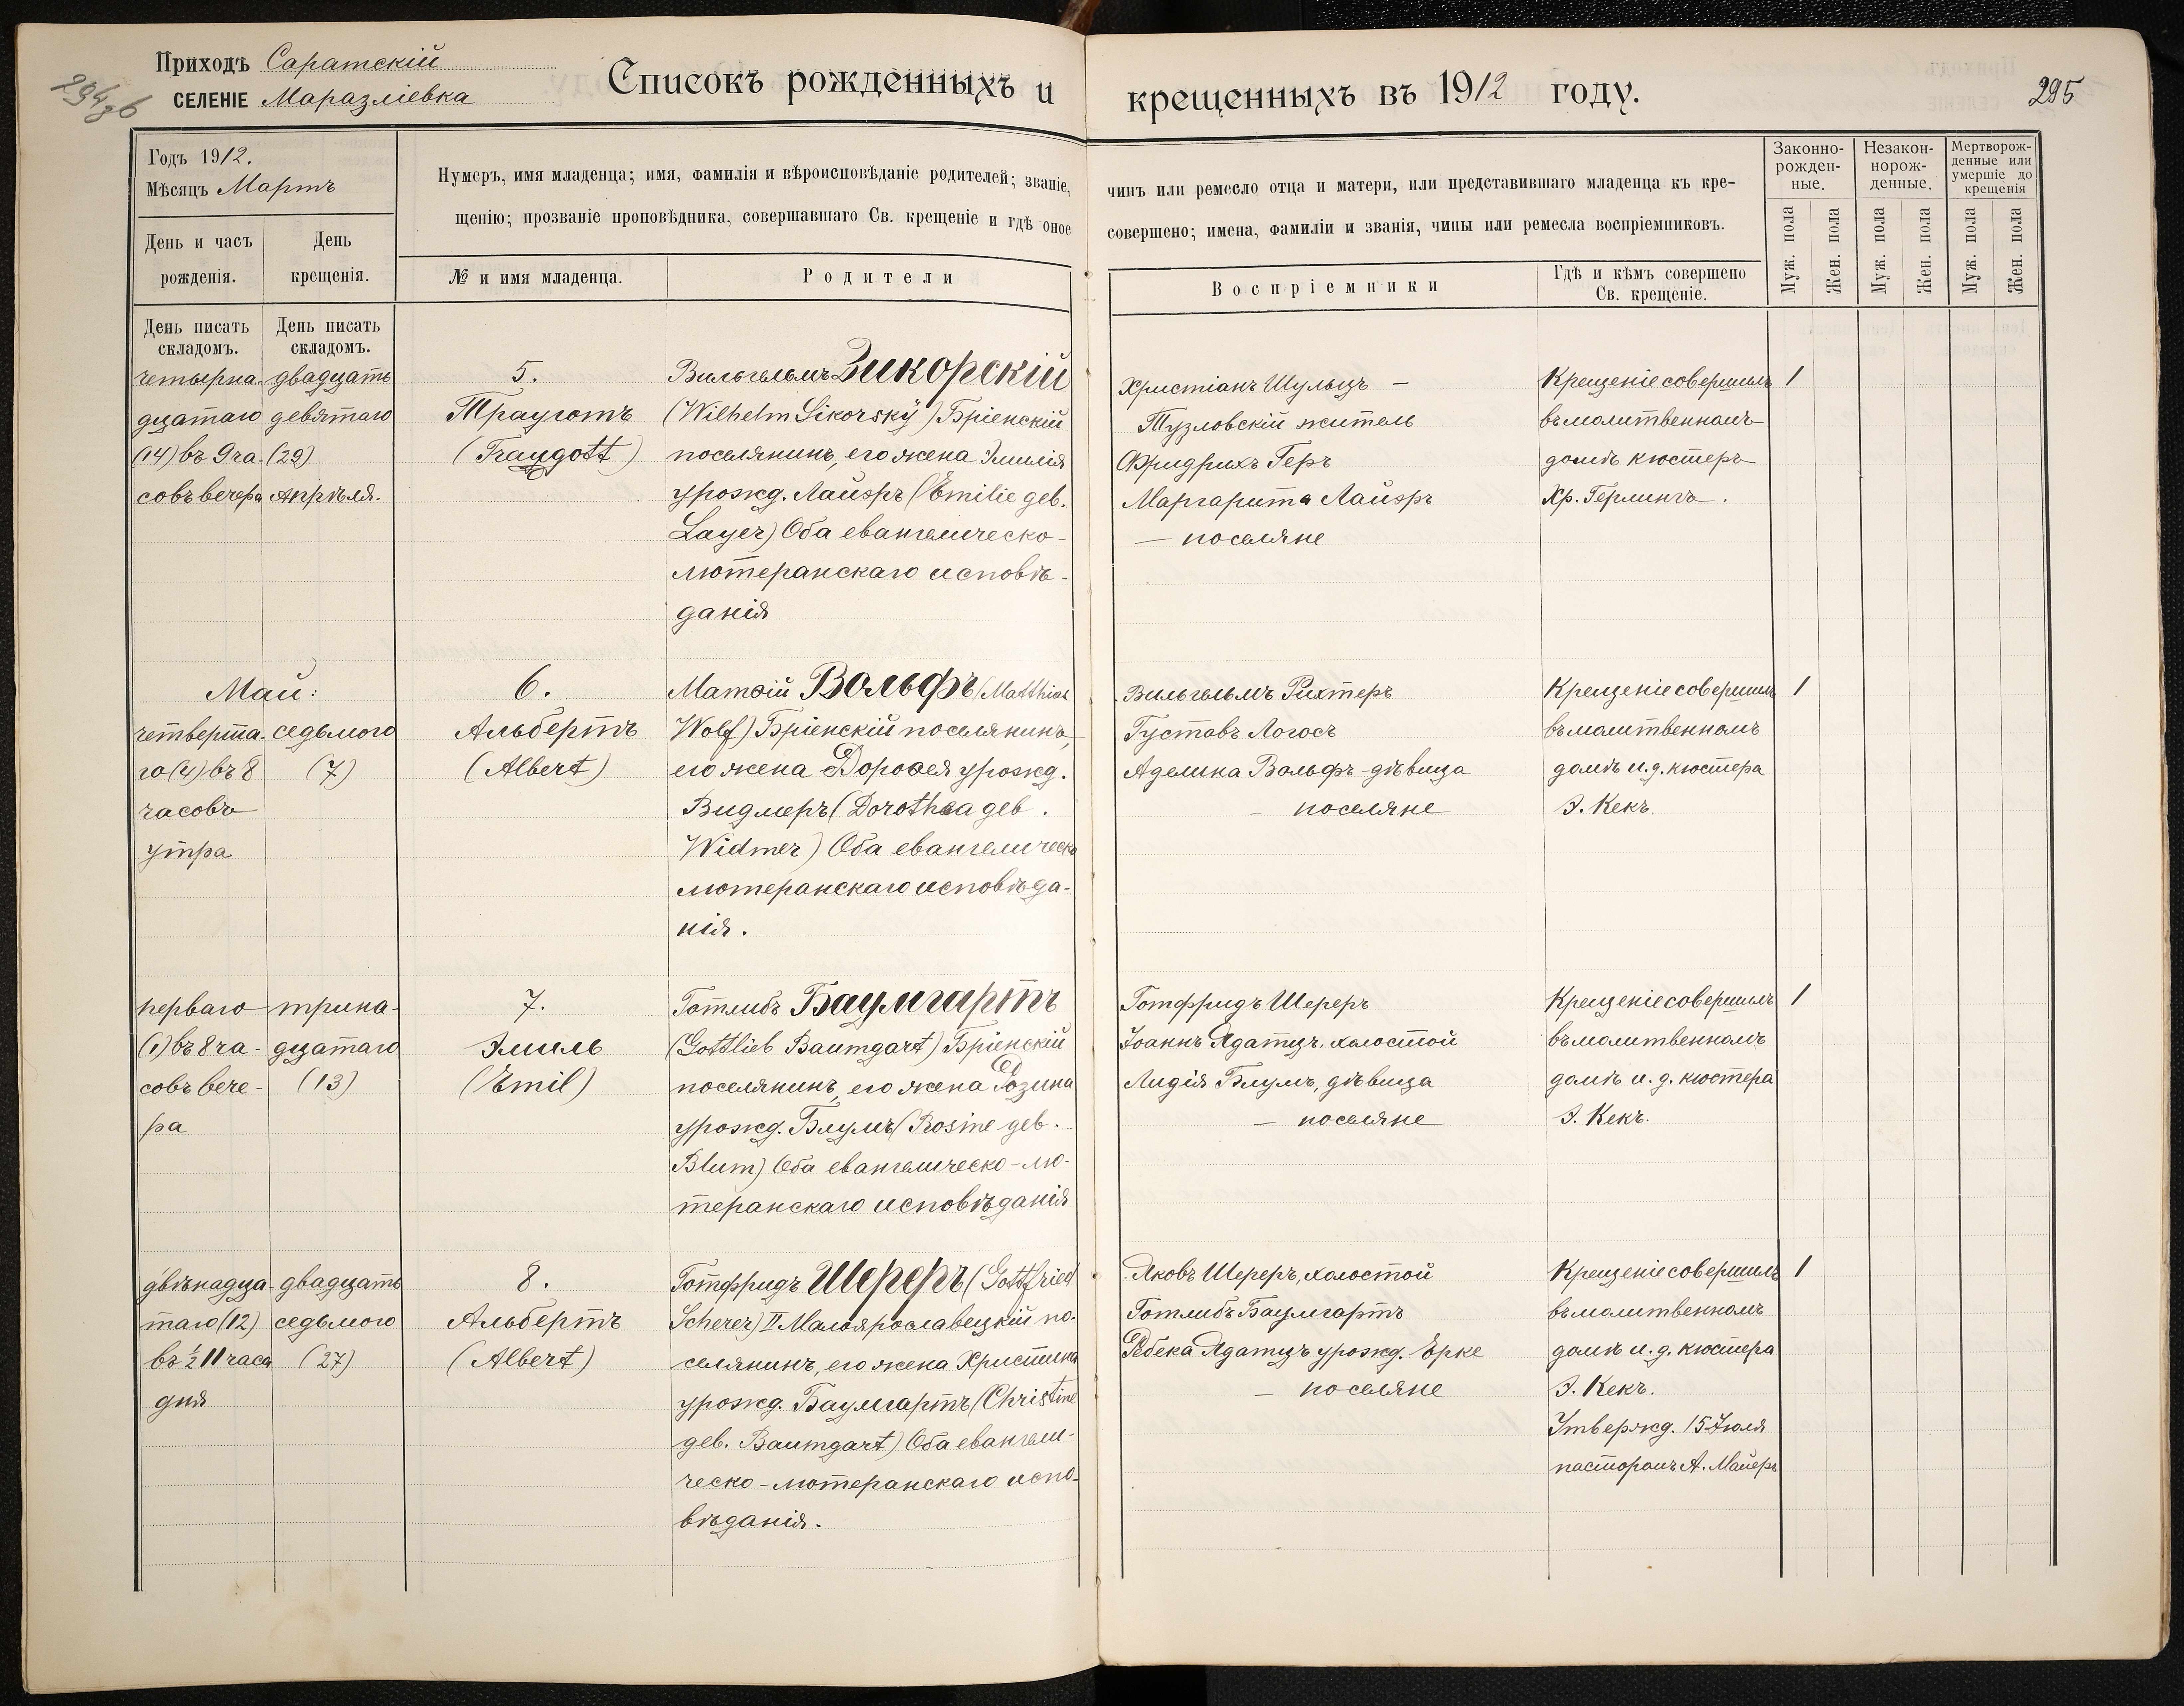 Приходъ Саратскій
СЕЛЕНІЕ Маразліевка
Списокъ рожденныхъ и крещенныхъ въ 1912 году.
295
Годъ 1912.
Мѣсяцъ Мартъ
Нумеръ, имя младенца; имя, фамилія и вѣроисповѣданіе родителей; званіе, чинъ или ремесло отца и матери, или представившаго младенца къ кре-
щенію; прозваніе проповѣдника, совершавшаго Св. крещеніе и гдѣ оное совершено; имена, фамиліи и званія, чины или ремесла воспріемниковъ.
День и часъ рожденія.
День крещенія.
№ и имя младенца.
Родители
Воспріемники
Гдѣ и кѣмъ совершено
Св. крещеніе.
Законно-
рожден-
ные.
Незакон-
норож-
денные.
Мертворож-
денные или
умершіе до
крещенія
Муж. пола
Жен. пола
Муж. пола
Жен. пола
Муж. пола
Жен. пола
День писать
складомъ.
День писать
складомъ.
четырна-
дцатаго
(14) въ 9 ча-
совъ вечера
двадцать
девятаго
(29)
Апрѣля.
5.
Траугомъ
(Traugott)
Вильгельмъ Зикорскій
(Wilhelm Sikorskÿ) Бріенскій
поселянинъ, его жена Эмилія
урожд. Лайэръ (Emilie geb.
Layer) Оба евангелическо-
лютеранскаго исповѣ-
данія
Христіанъ Шульцъ —
Тузловскій житель
Фридрихъ Геръ
Маргарита Лайэръ
— поселяне
Крещеніе совершилъ
въ молитвенномъ
домѣ кюстеръ
Хр. Герлингъ.
1
Май:
четверта-
го (4) въ 8
часовъ
утра
седьмого
(7)
6.
Альбертъ
(Albert)
Матѳій Вольфъ (Matthias
Wolf) Бріенскій поселянинъ,
его жена Дороѳея урожд.
Видмеръ (Dorothea geb.
Widmer) Оба евангелическо
лютеранскаго исповѣда-
нія.
Вильгельмъ Рихтеръ
Густавъ Логосъ
Аделина Вольфъ - дѣвица
— поселяне
Крещеніе совершилъ
въ молитвенномъ
домѣ и. д. кюстера
Э. Кекъ.
1
перваго
(1) въ 8 ча-
совъ вече-
ра
трина-
дцатаго
(13)
7.
Эмиль
(Emil)
Готлибъ Баумгартъ
(Gottlieb Baumgart) Бріенскій
поселянинъ, его жена Розина
урожд. Блумъ (Rosine geb.
Blum) Оба евангелическо-лю-
теранскаго исповѣданія
Готфридъ Шереръ
Іоаннъ Ядатцъ. холостой
Лидія Блумъ, дѣвица
— поселяне
Крещеніе совершилъ
въ молитвенномъ
домѣ и. д. кюстера
Э. Кекъ.
1
двѣнадца-
таго (12)
въ ½ 11 часа
дня
двадцать
седьмого
(27)
8.
Альбертъ
(Albert)
Готфридъ Шереръ (Gottfried
Scherer) II Малоярославецкій по-
селянинъ, его жена Христина
урожд. Баумгартъ (Christine
geb. Baumgart) Оба евангели-
ческо-лютеранскаго испо-
вѣданія.
Яковъ Шереръ, холостой
Готлибъ Баумгартъ
Ребека Ядатцъ урожд. Ерке
— поселяне
Крещеніе совершилъ
въ молитвенномъ
домѣ и. д. кюстера
Э. Кекъ.
Утвержд. 15 Іюля
пасторомъ А. Майеръ
1